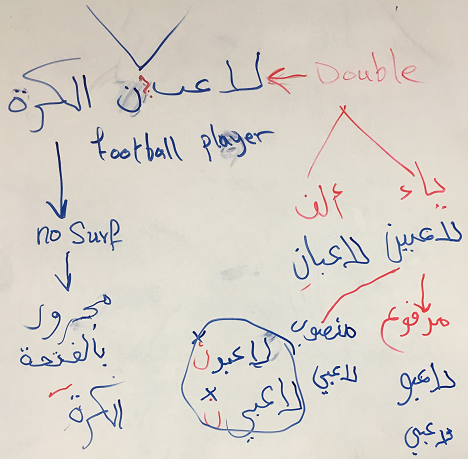 لاعبين الكرة ← Double
football player
ياء
ألف
no Surf
لاعبين
لاعبان
مجرور
بالفتحة
الكرة
منصوب
لاعبي
مرفوع
لاعبو
لاعبي
لاعبون
لاعبين